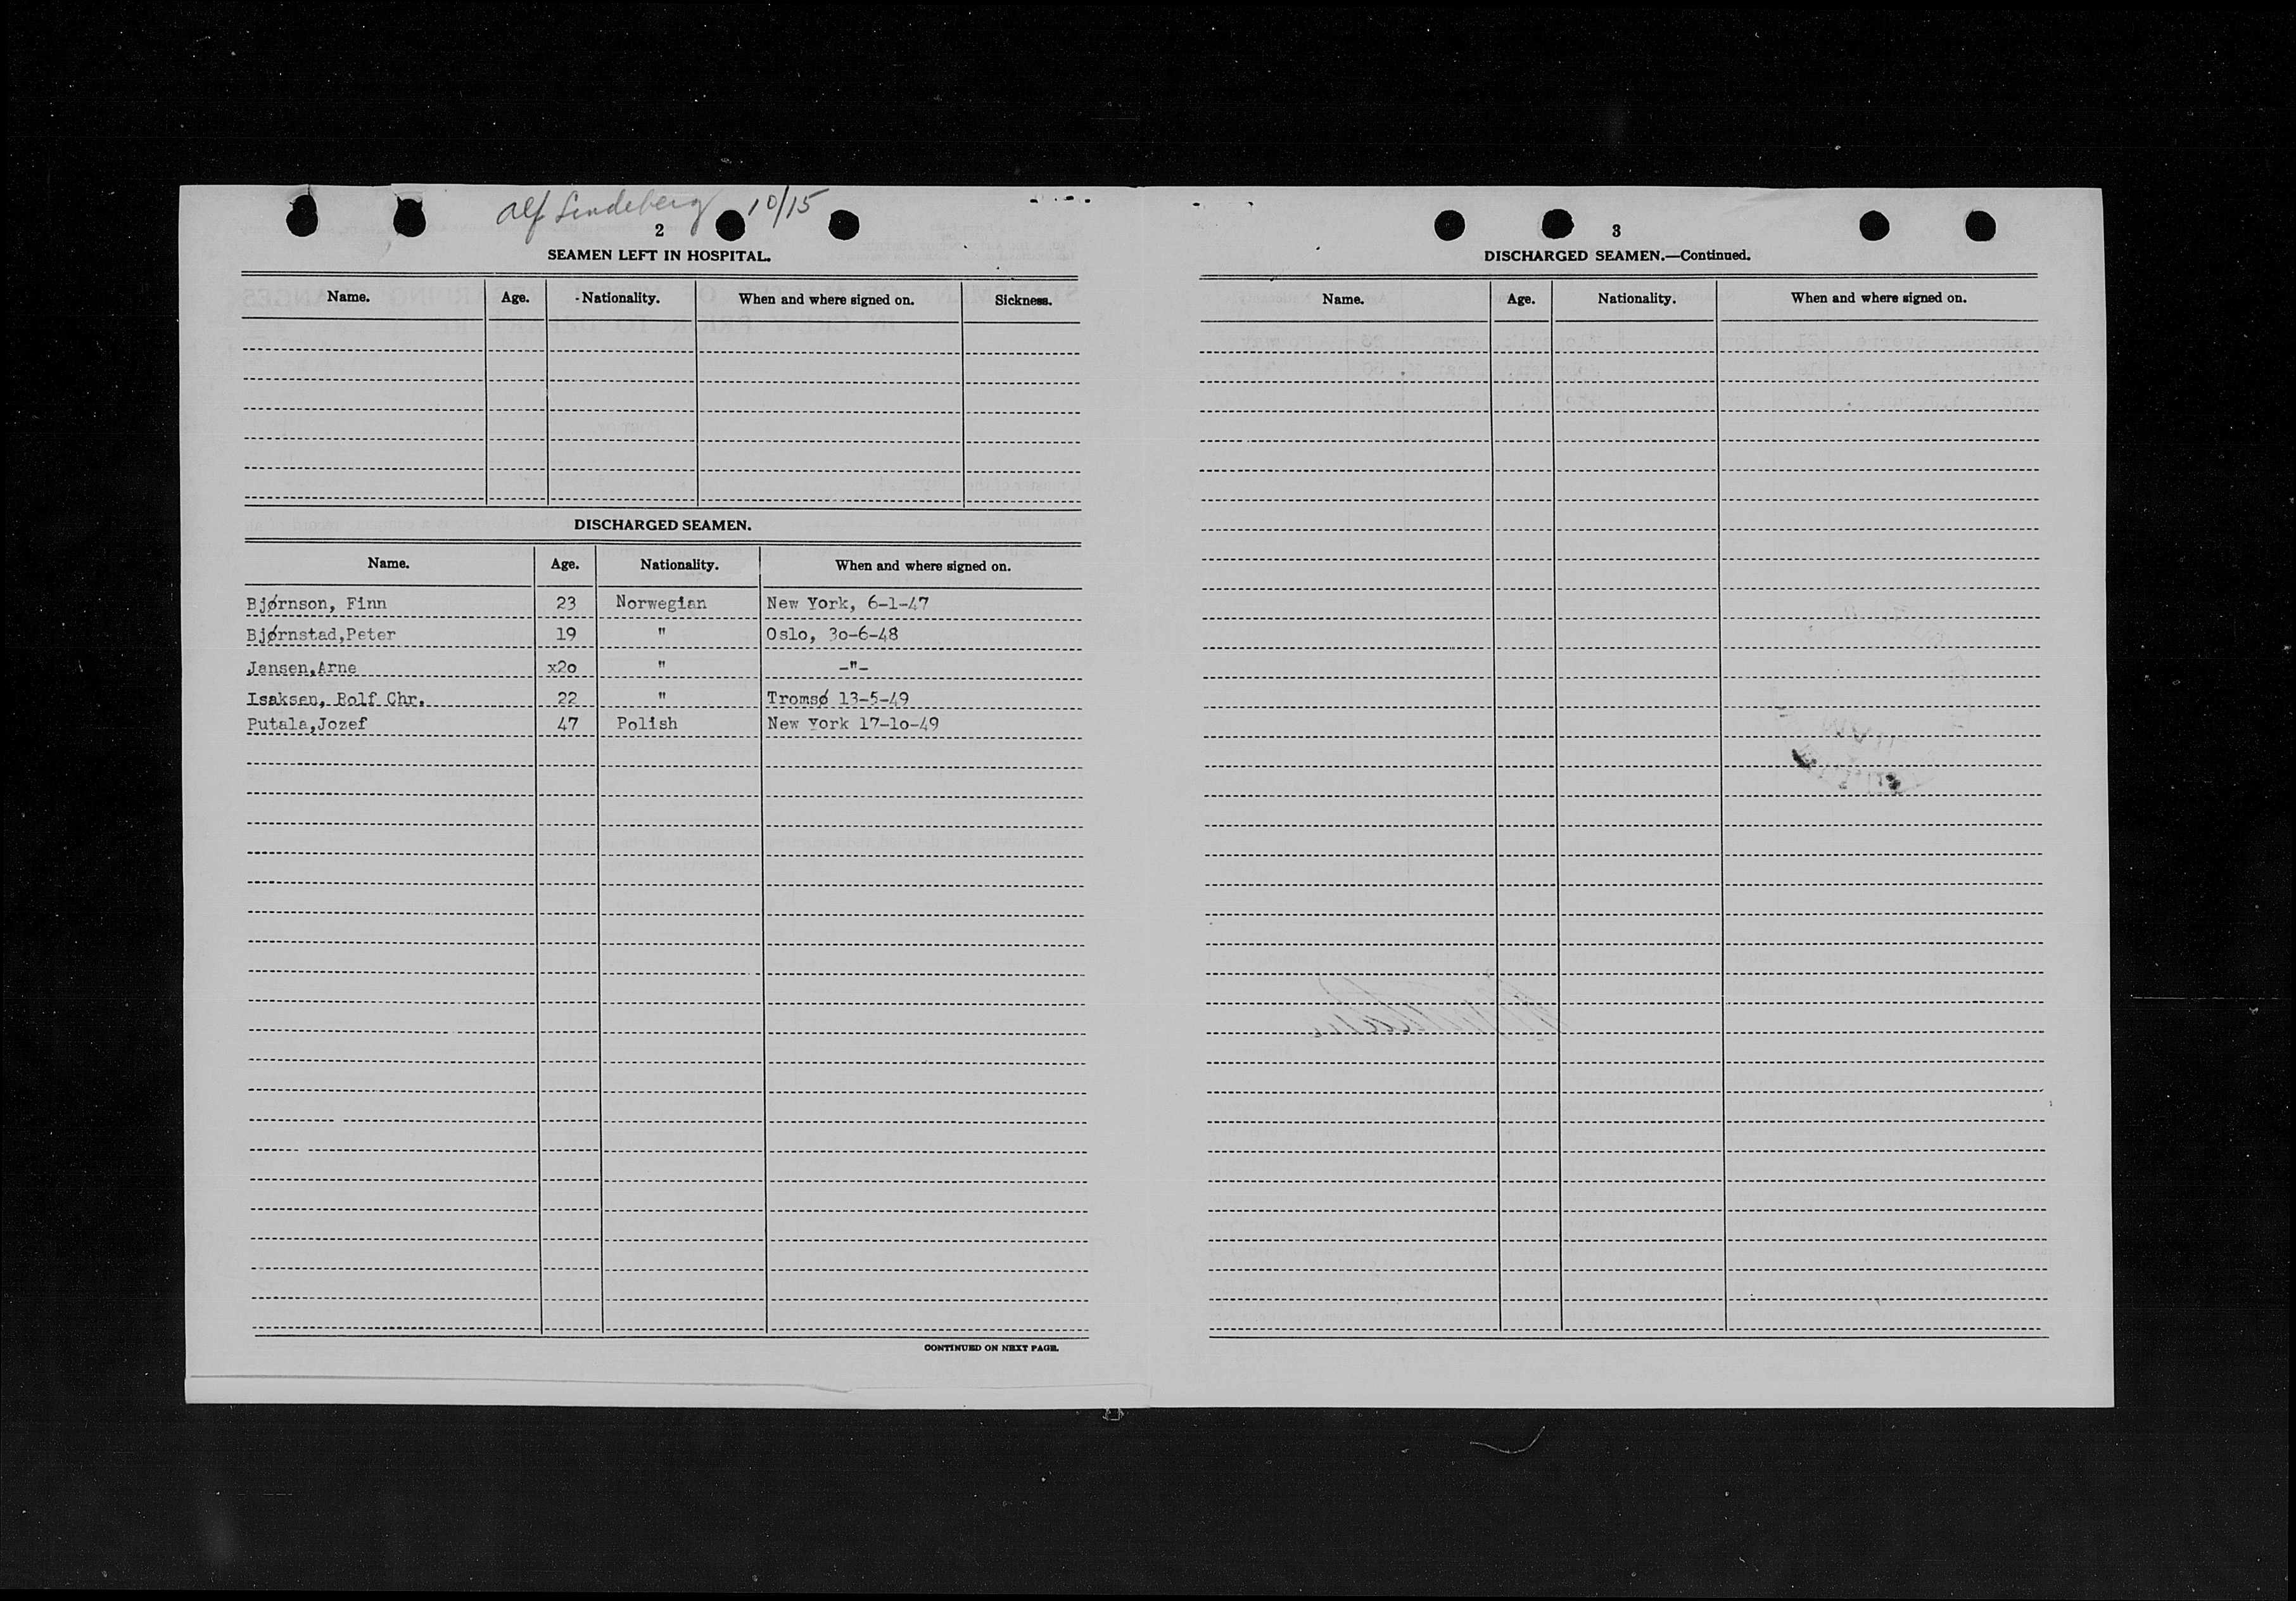 Alf Lindeberg 10/15
2
SEAMEN LEFT IN HOSPITAL.
Name. Age. Nationality. When and where signed on. Sickness.
DISCHARGED SEAMEN.
Name. Age. Nationality. When and where signed on.
Bjørnson, Finn 23 Norwegian New York, 6-1-47
Bjørnstad,Peter 19 " Oslo, 3o-6-48
Jansen,Arne x2o " -"-
Isaksen, Rolf Chr. 22 " Tromsø 13-5-49
Putala,Jozef 47 Polish New York 17-1o-49
CONTINUED ON NEXT PAGE.
3
DISCHARGED SEAMEN.—Continued.
Name. Age. Nationality. When and where signed on.